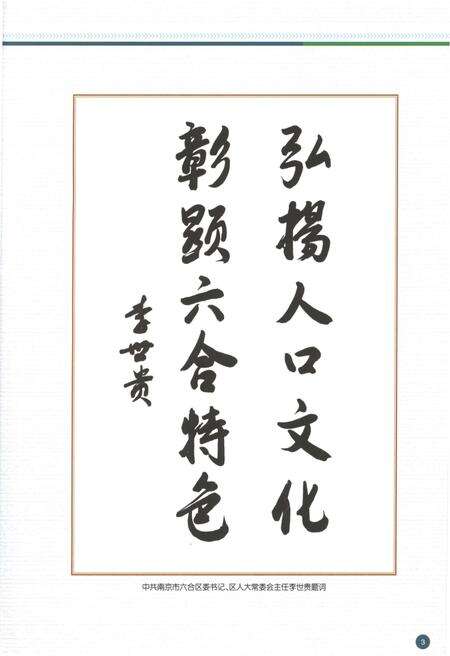 弘揚人口文化
彰显六合特色
李世贵
中共南京市六合区委书记、区人大常委会主任李世贵题词
3